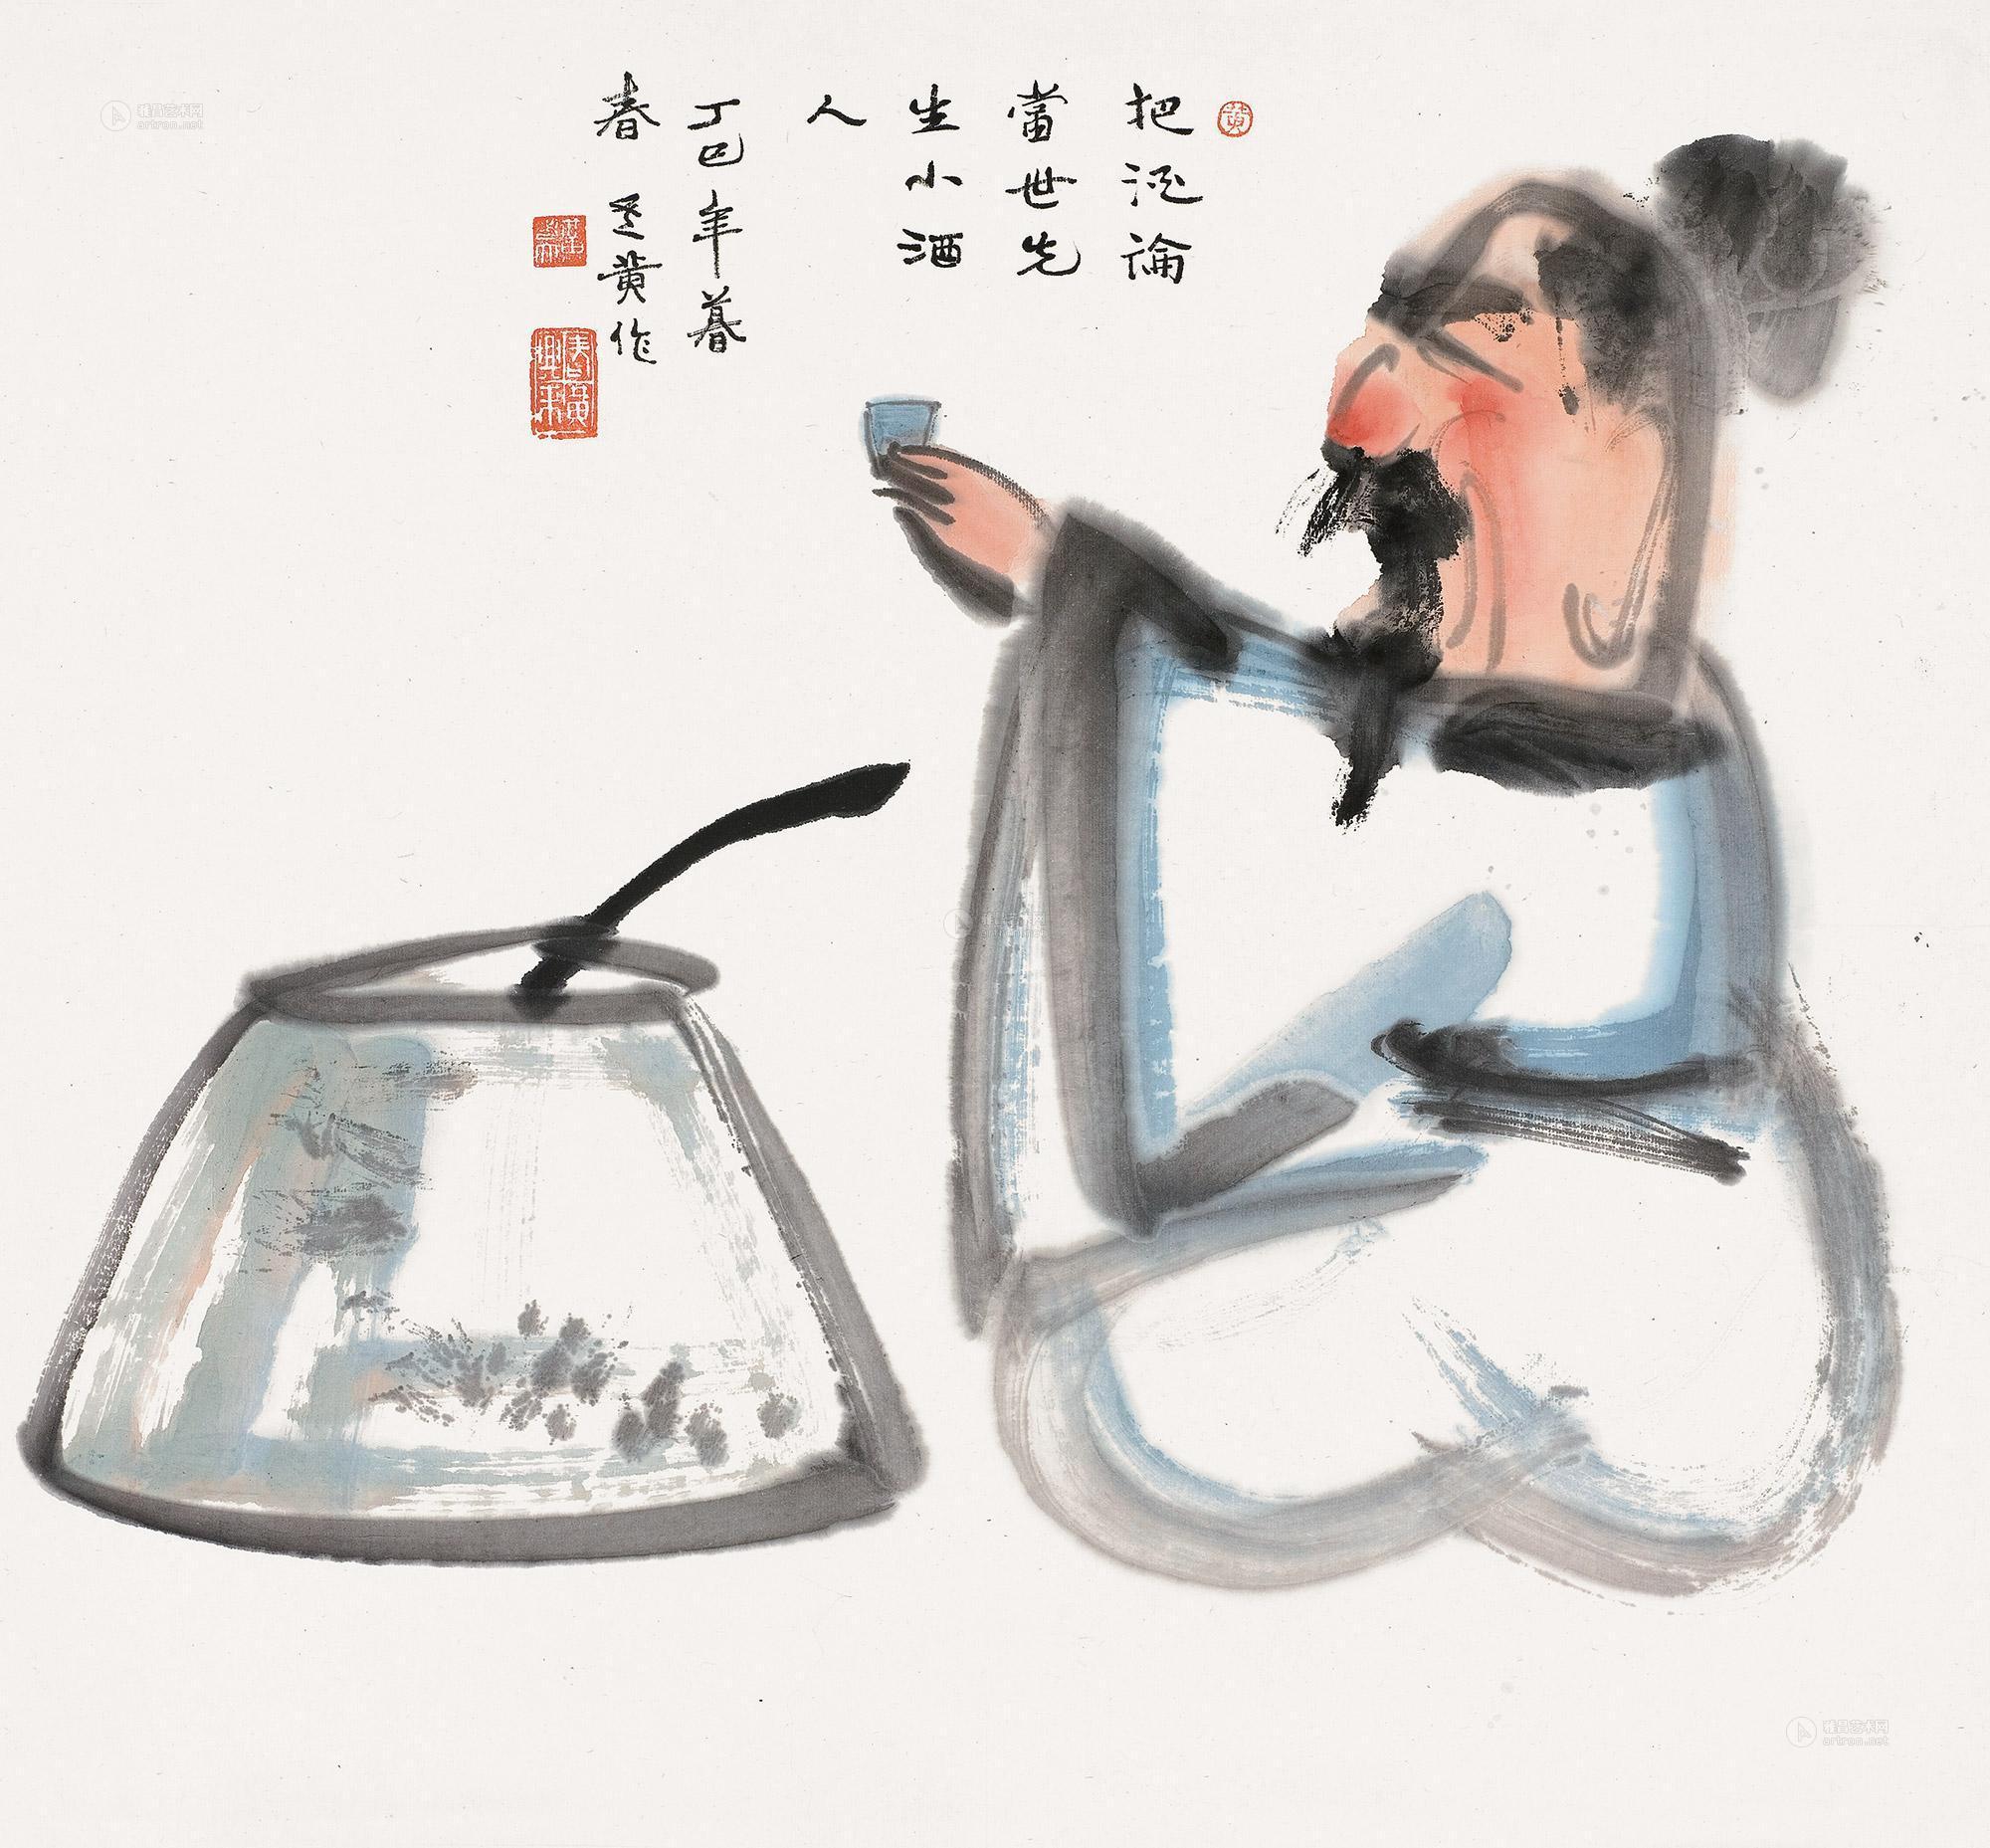 黄
把酒論
當世先
生小酒
人
丁巳年暮
春 黄作
雅昌艺术网
artron.net
雅昌艺术网
artron.net